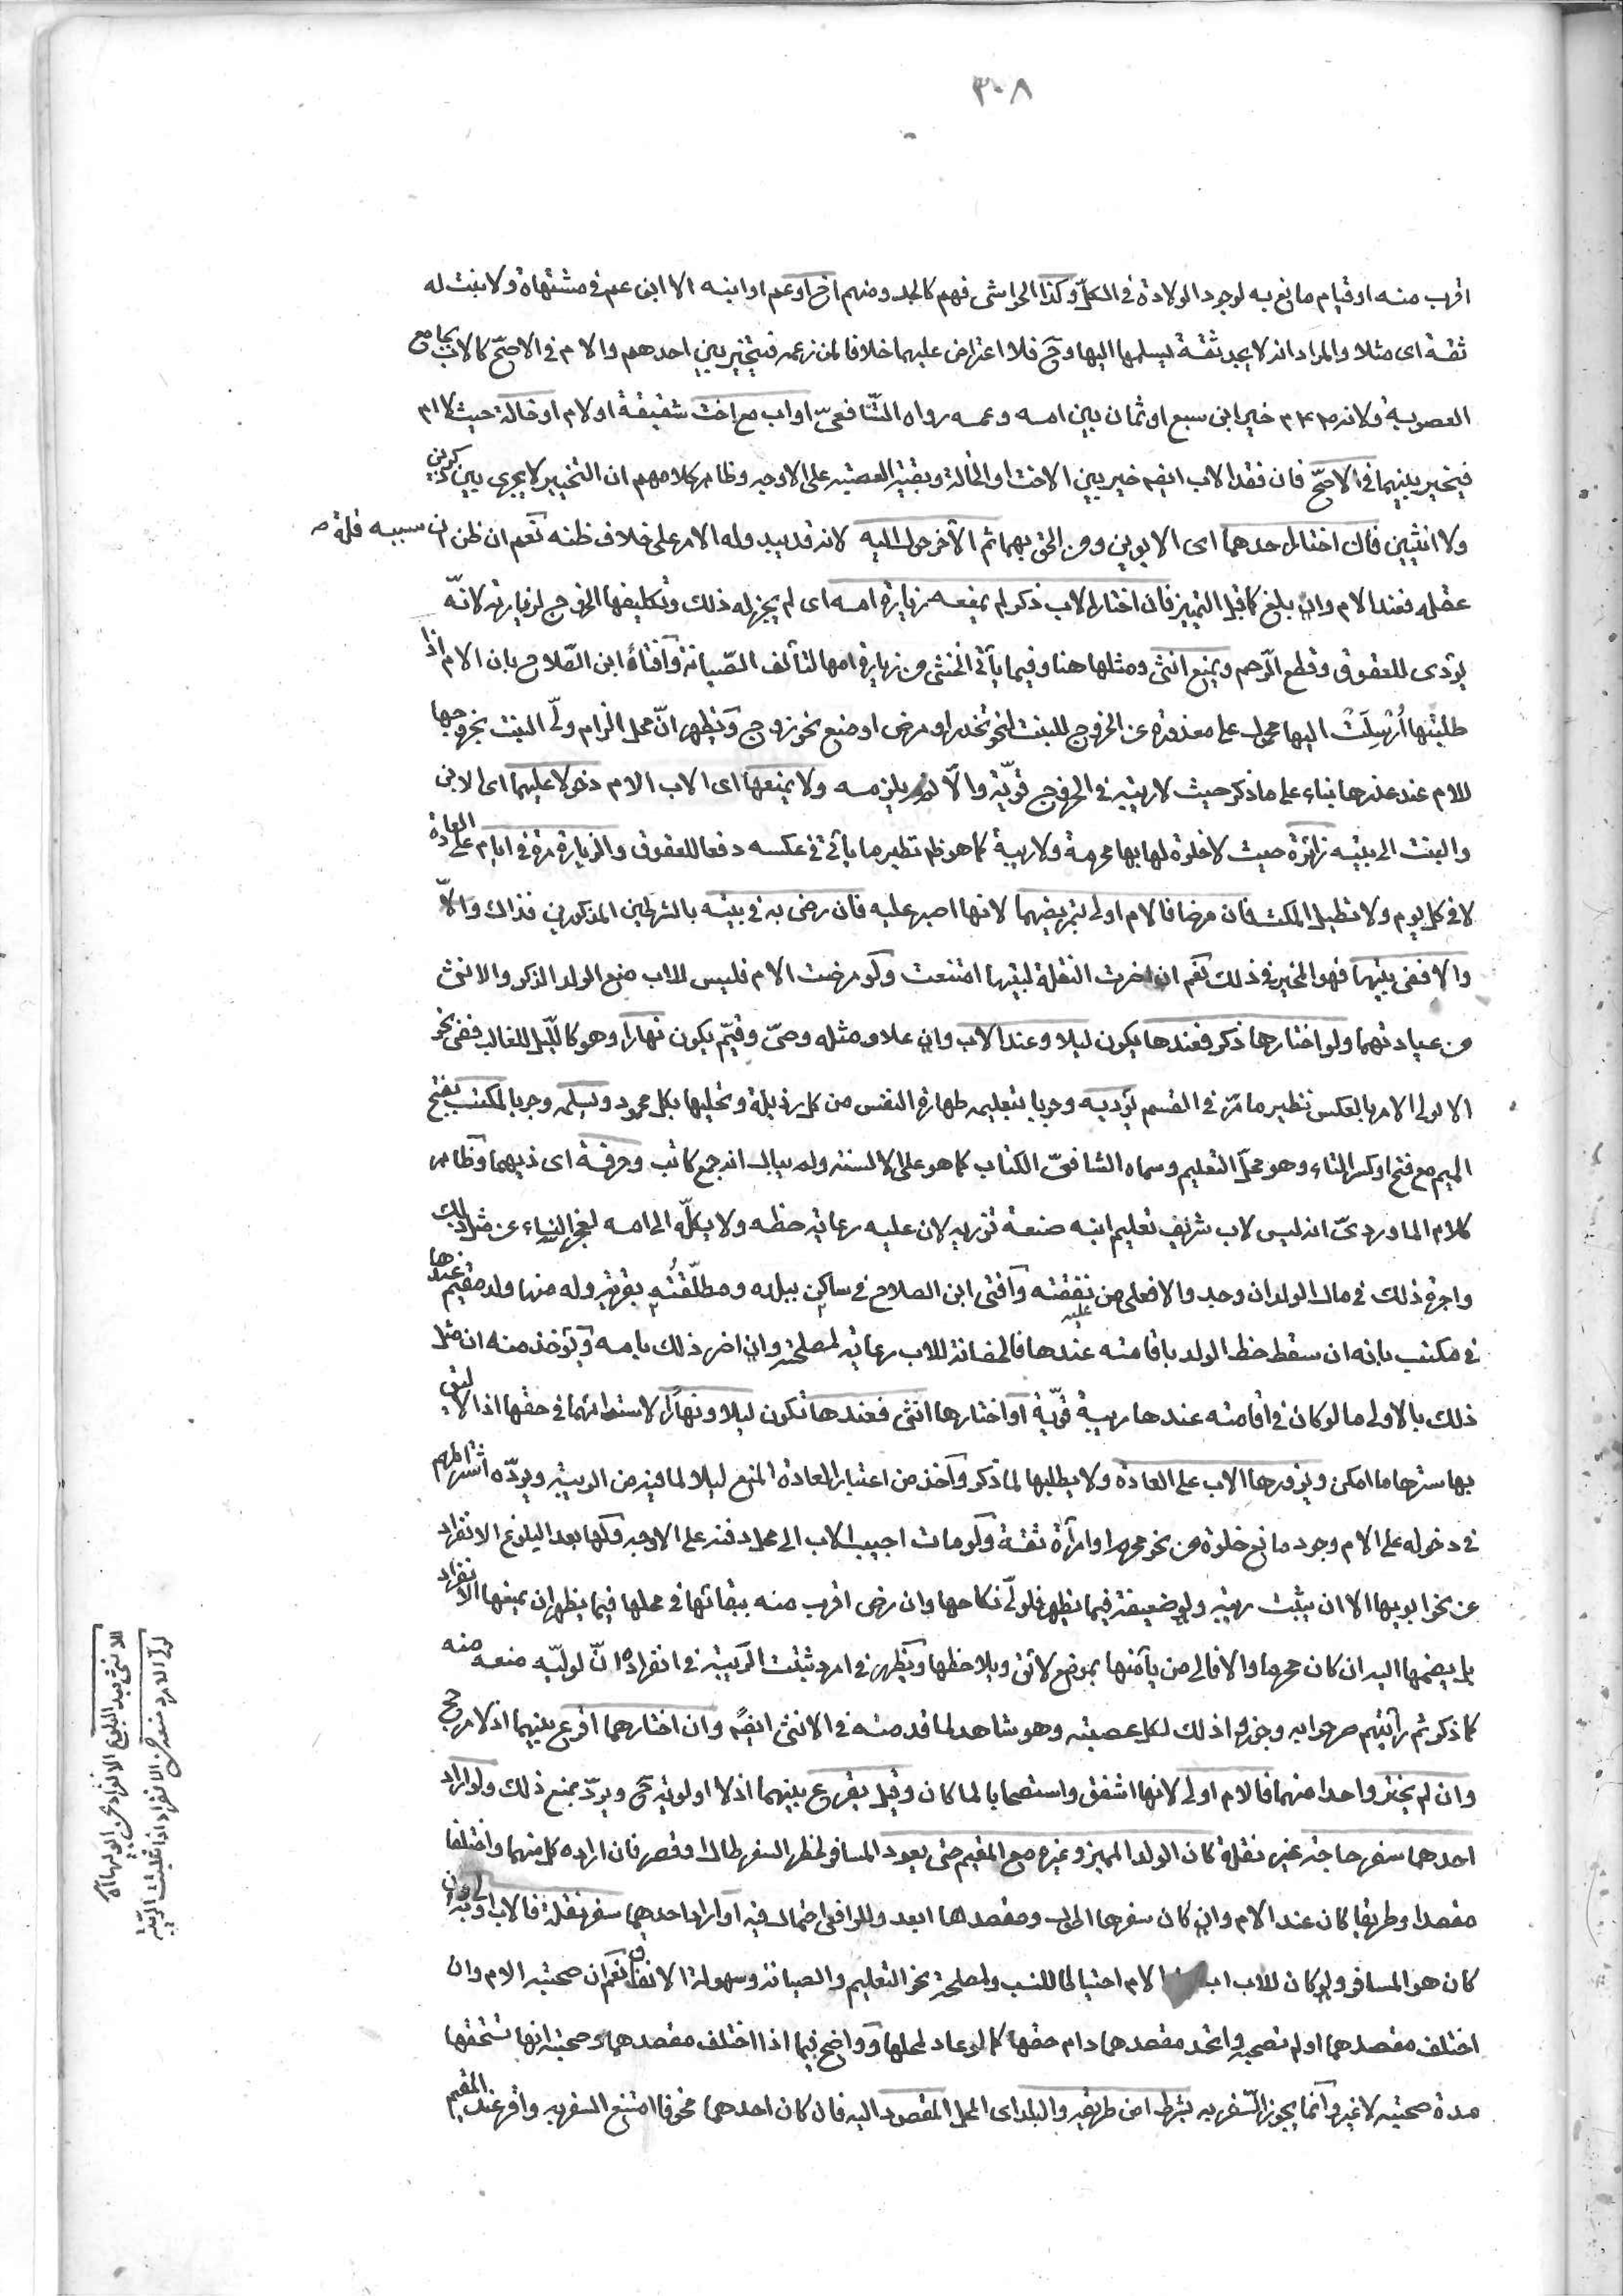 ٣٠٨
اقرب منه او قيام مانع به لوجود الولادة فى الكل وكذا الحواشى فهم كالجد ومنهم اخ او عم او ابنه الا ابن عم فى مشتهاة ولا بنت له
ثقة اى مثلا والمراد انه لا يجد ثقة يسلمها اليها وح فلا اعتراض عليهما خلافا لمن زعمه فيتخير بين احدهم والام فى الاصح كالاب بجامع
العصوبة ولانه صلعم خير ابن سبع او ثمان بين امه وعمه رواه الشافعى او اب مع اخت شقيقة او لام او خالة حيث لا ام
فيخير بينهما فى الاصح فان فقد الاب ايضا خير بين الاخت او الخالة وبقية العصبة على الاوجه وظاهر كلامهم ان التخيير لا يجرى بين ذكرين
ولا انثيين فان اختار احدهما اى الابوين ومن الحق بهما ثم الآخر حول اليه لانه قد يبدو له الامر على خلاف ظنه نعم ان ظن ان سببه قلة
عقله فعند الام وان بلغ كما قبل التمييز فان اختار الاب ذكر لم يمنعه زيارة امه اى لم يجز له ذلك وتكليفها الخروج لزيارته لانه
يؤدى للعقوق وقطع الرحم ويمنع انثى ومثلها هنا وفيما يأتى الخنثى من زيارة امها لتألف الصيانة وافتاء ابن الصلاح بان الام اذا
طلبتها أُرسِلَتْ اليها محمول على معذورة عن الخروج للبنت لنحو تخدر او مرض او منع نحو زوج ويظهر ان محل الزام ولى البنت بخروجها
للام عند عذرها بناء على ما ذكر حيث لا ريبة فى الخروج قوية والا لم يلزمه ولا يمنعها اى الاب الام دخولا عليهما اى الابن
والبنت الى بيته زائرة حيث لا خلوة لها بها محرمة ولا ريبة كما هو ظ نظير ما يأتى فى عكسه دفعا للعقوق والزيارة مرة فى ايام على العادة
لا فى كل يوم ولا تطيل المكث فان مرضا فالام اولى بتمريضهما لانها اصبر عليه فان رضى به فى بيته بالشرطين المذكورين فذاك والا
والا ففى بيتها فهو المخير فى ذلك نعم ان اضرت النقلة لبيتها امتنعت ولو مرضت الام فليس للاب منع الولد الذكر والانثى
من عيادتهما ولو اختارها ذكر فعندها يكون ليلا وعند الاب وان علا ومثله وصى وقيم يكون نهارا وهو كالليل للغالب ففى نحو
الاولى الامر بالعكس نظير ما مر فى القسم يؤدبه وجوبا بتعليمه طهارة النفس من كل رذيلة وتحليها بكل محمود ويسلمه وجوبا لمكتب بفتح
الميم مع فتح او كسر التاء وهو محل التعليم وسماه الشافعى الكتاب كما هو على الالسنة ولم يبال انه جمع كاتب وحرفة اى ذيهما وظاهر
كلام الماوردى انه ليس لاب شريف تعليم ابنه صنعة تزريه لان عليه رعاية حظه ولا يكله الى امه لعجز النساء عن مثل ذلك
واجرة ذلك فى مال الولد ان وجد والا فعلى من عليه نفقته وافتى ابن الصلاح فى ساكن ببلده ومطلقته بقرية وله منها ولد مقيم عندها
فى مكتب بانه ان سقط حظ الولد باقامته عندها فالحضانة للاب رعاية لمصلحته وان اضر ذلك بامه ويؤخذ منه ان مثل
ذلك بالاولى ما لو كان فى اقامته عندها ريبة قوية او اختارها انثى فعندها تكون ليلا ونهارا لاستوائهما فى حقها اذ الاليق
بها سترها ما امكن ويزورها الاب على العادة ولا يطلبها لما ذكر واخذ من اعتبار العادة المنع ليلا لما فيه من الريبة ويرده اشتراطهم
فى دخوله على الام وجود مانع خلوة من نحو محرم او امرأة ثقة ولو مات اجيب الاب الى محل دفنه على الاوجه ولها بعد البلوغ الانفراد
عن نحو ابويها الا ان يثبت ريبة ولو ضعيفة فيما يظهر فلولى نكاحها وان رضى اقرب منه ببقائها فى محلها فيما يظهر ان يمنعها الانفراد
بل يضمها اليه ان كان محرما والا فالى من يأمنها بموضع لائق ويلاحظها ويظهر فى امرد ثبتت الريبة فى انفراده ان لوليه منعه منه
كما ذكر ثم رأيتهم صرحوا به وجوزوا ذلك لكل عصبة وهو شاهد لما قدمته فى الانثى ايضا وان اختارهما اقرع بينهما اذ لا مرجح
وان لم يختر واحدا منهما فالام اولى لانها اشفق واستصحابا لما كان وقيل يقرع بينهما اذ لا اولوية ح ويرد بمنع ذلك ولو اراد
احدهما سفر حاجة غير نقلة كان الولد المميز وغيره مع المقيم حتى يعود المسافر لخطر السفر طال او قصر فان اراده كل منهما واختلفا
مقصدا وطريقا كان عند الام وان كان سفرها اطول ومقصدها ابعد وللرافعى احتمال فيه او اراد احدهما سفر نقلة فالاب اولى به ان
كان هو المسافر ولو كان للاب الام احتياطا للنسب ولمصلحة نحو التعليم والصيانة وسهولة الانفاق نعم ان صحبته الام وان
اختلف مقصدهما او لم تصحبه واتحد مقصدهما دام حقها كما لو عاد لمحلها وواضح فيما اذا اختلف مقصدهما وصحبته انها تستحقها
مدة صحبته لا غير وانما يجوز السفر به بشرط امن طريقه والبلد اى المحل المقصود اليه فان كان احدهما مخوفا امتنع السفر به واقر عند المقيم
للانثى بعد البلوغ الانفراد عن ابويها
لولى الامرد منعه من الانفراد اذا ثبت الريبة